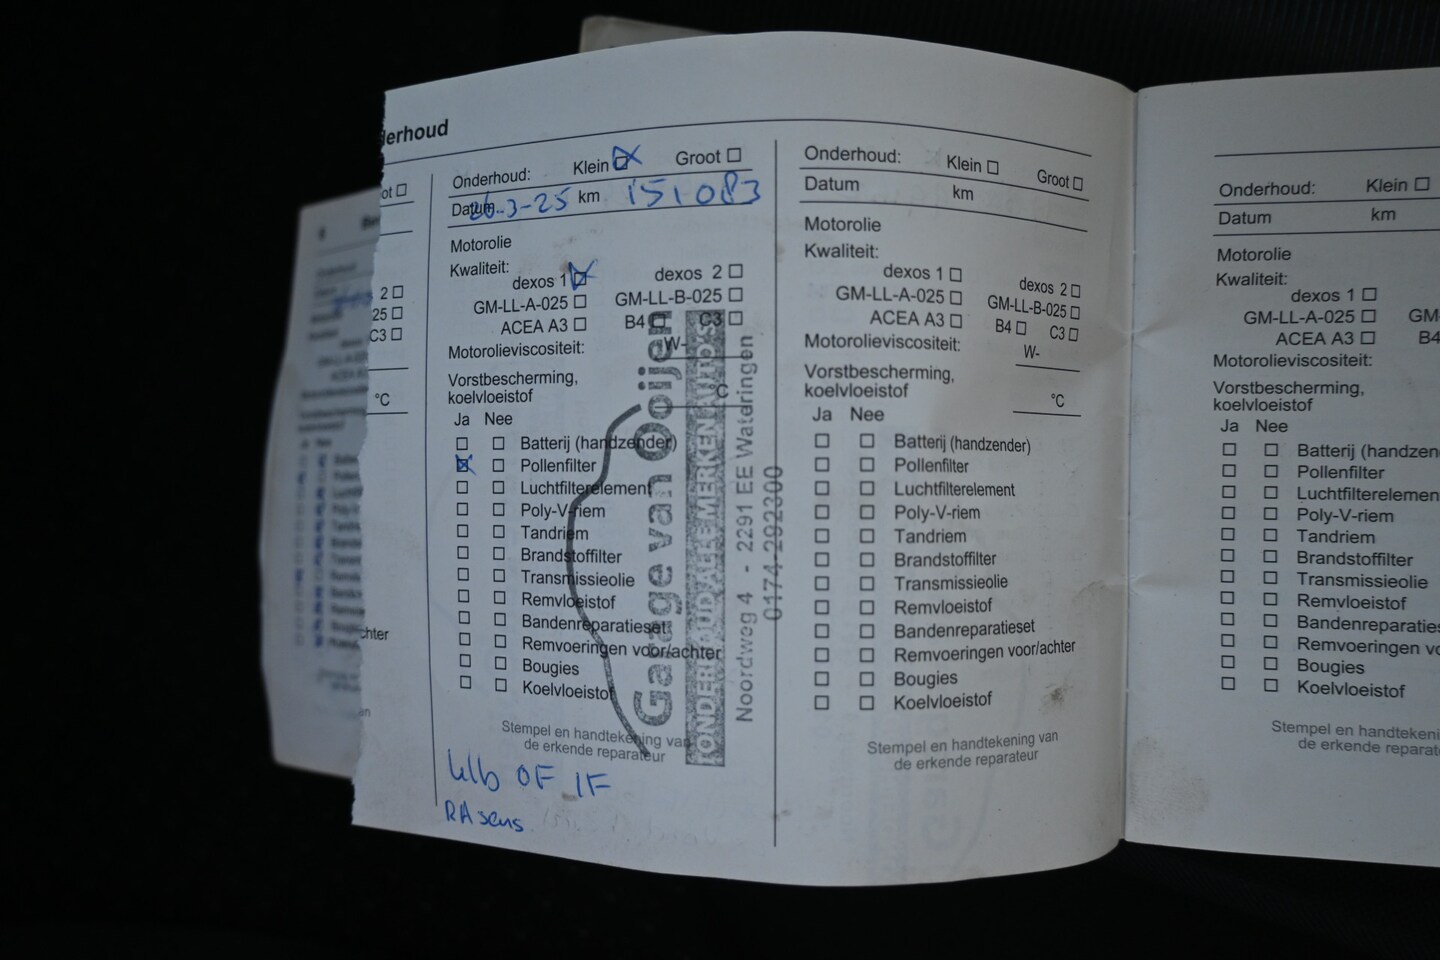 derhoud
ot ☐
2 ☐
25 ☐
C3 ☐
°C
chter
an
Onderhoud: Klein ☒ Groot ☐
Datum 26-3-25 km 151083
Motorolie
Kwaliteit:
dexos 1 ☒ dexos 2 ☐
GM-LL-A-025 ☐ GM-LL-B-025 ☐
ACEA A3 ☐ B4 ☐ C3 ☐
Motorolieviscositeit: W-
Vorstbescherming,
koelvloeistof °C
Ja Nee
☐ ☐ Batterij (handzender)
☒ ☐ Pollenfilter
☐ ☐ Luchtfilterelement
☐ ☐ Poly-V-riem
☐ ☐ Tandriem
☐ ☐ Brandstoffilter
☐ ☐ Transmissieolie
☐ ☐ Remvloeistof
☐ ☐ Bandenreparatieset
☐ ☐ Remvoeringen voor/achter
☐ ☐ Bougies
☐ ☐ Koelvloeistof
Stempel en handtekening van
de erkende reparateur
Garage van Ooijen
ONDERHOUD ALLE MERKEN AUTO'S
Noordweg 4 - 2291 EE Wateringen
0174-292300
OF IF
RA sens
Onderhoud: Klein ☐ Groot ☐
Datum km
Motorolie
Kwaliteit:
dexos 1 ☐ dexos 2 ☐
GM-LL-A-025 ☐ GM-LL-B-025 ☐
ACEA A3 ☐ B4 ☐ C3 ☐
Motorolieviscositeit: W-
Vorstbescherming,
koelvloeistof °C
Ja Nee
☐ ☐ Batterij (handzender)
☐ ☐ Pollenfilter
☐ ☐ Luchtfilterelement
☐ ☐ Poly-V-riem
☐ ☐ Tandriem
☐ ☐ Brandstoffilter
☐ ☐ Transmissieolie
☐ ☐ Remvloeistof
☐ ☐ Bandenreparatieset
☐ ☐ Remvoeringen voor/achter
☐ ☐ Bougies
☐ ☐ Koelvloeistof
Stempel en handtekening van
de erkende reparateur
Onderhoud: Klein ☐
Datum km
Motorolie
Kwaliteit:
dexos 1 ☐
GM-LL-A-025 ☐ GM-
ACEA A3 ☐ B4
Motorolieviscositeit:
Vorstbescherming,
koelvloeistof
Ja Nee
☐ ☐ Batterij (handzen
☐ ☐ Pollenfilter
☐ ☐ Luchtfilterelemen
☐ ☐ Poly-V-riem
☐ ☐ Tandriem
☐ ☐ Brandstoffilter
☐ ☐ Transmissieolie
☐ ☐ Remvloeistof
☐ ☐ Bandenreparaties
☐ ☐ Remvoeringen vo
☐ ☐ Bougies
☐ ☐ Koelvloeistof
Stempel en handtekeni
de erkende reparat